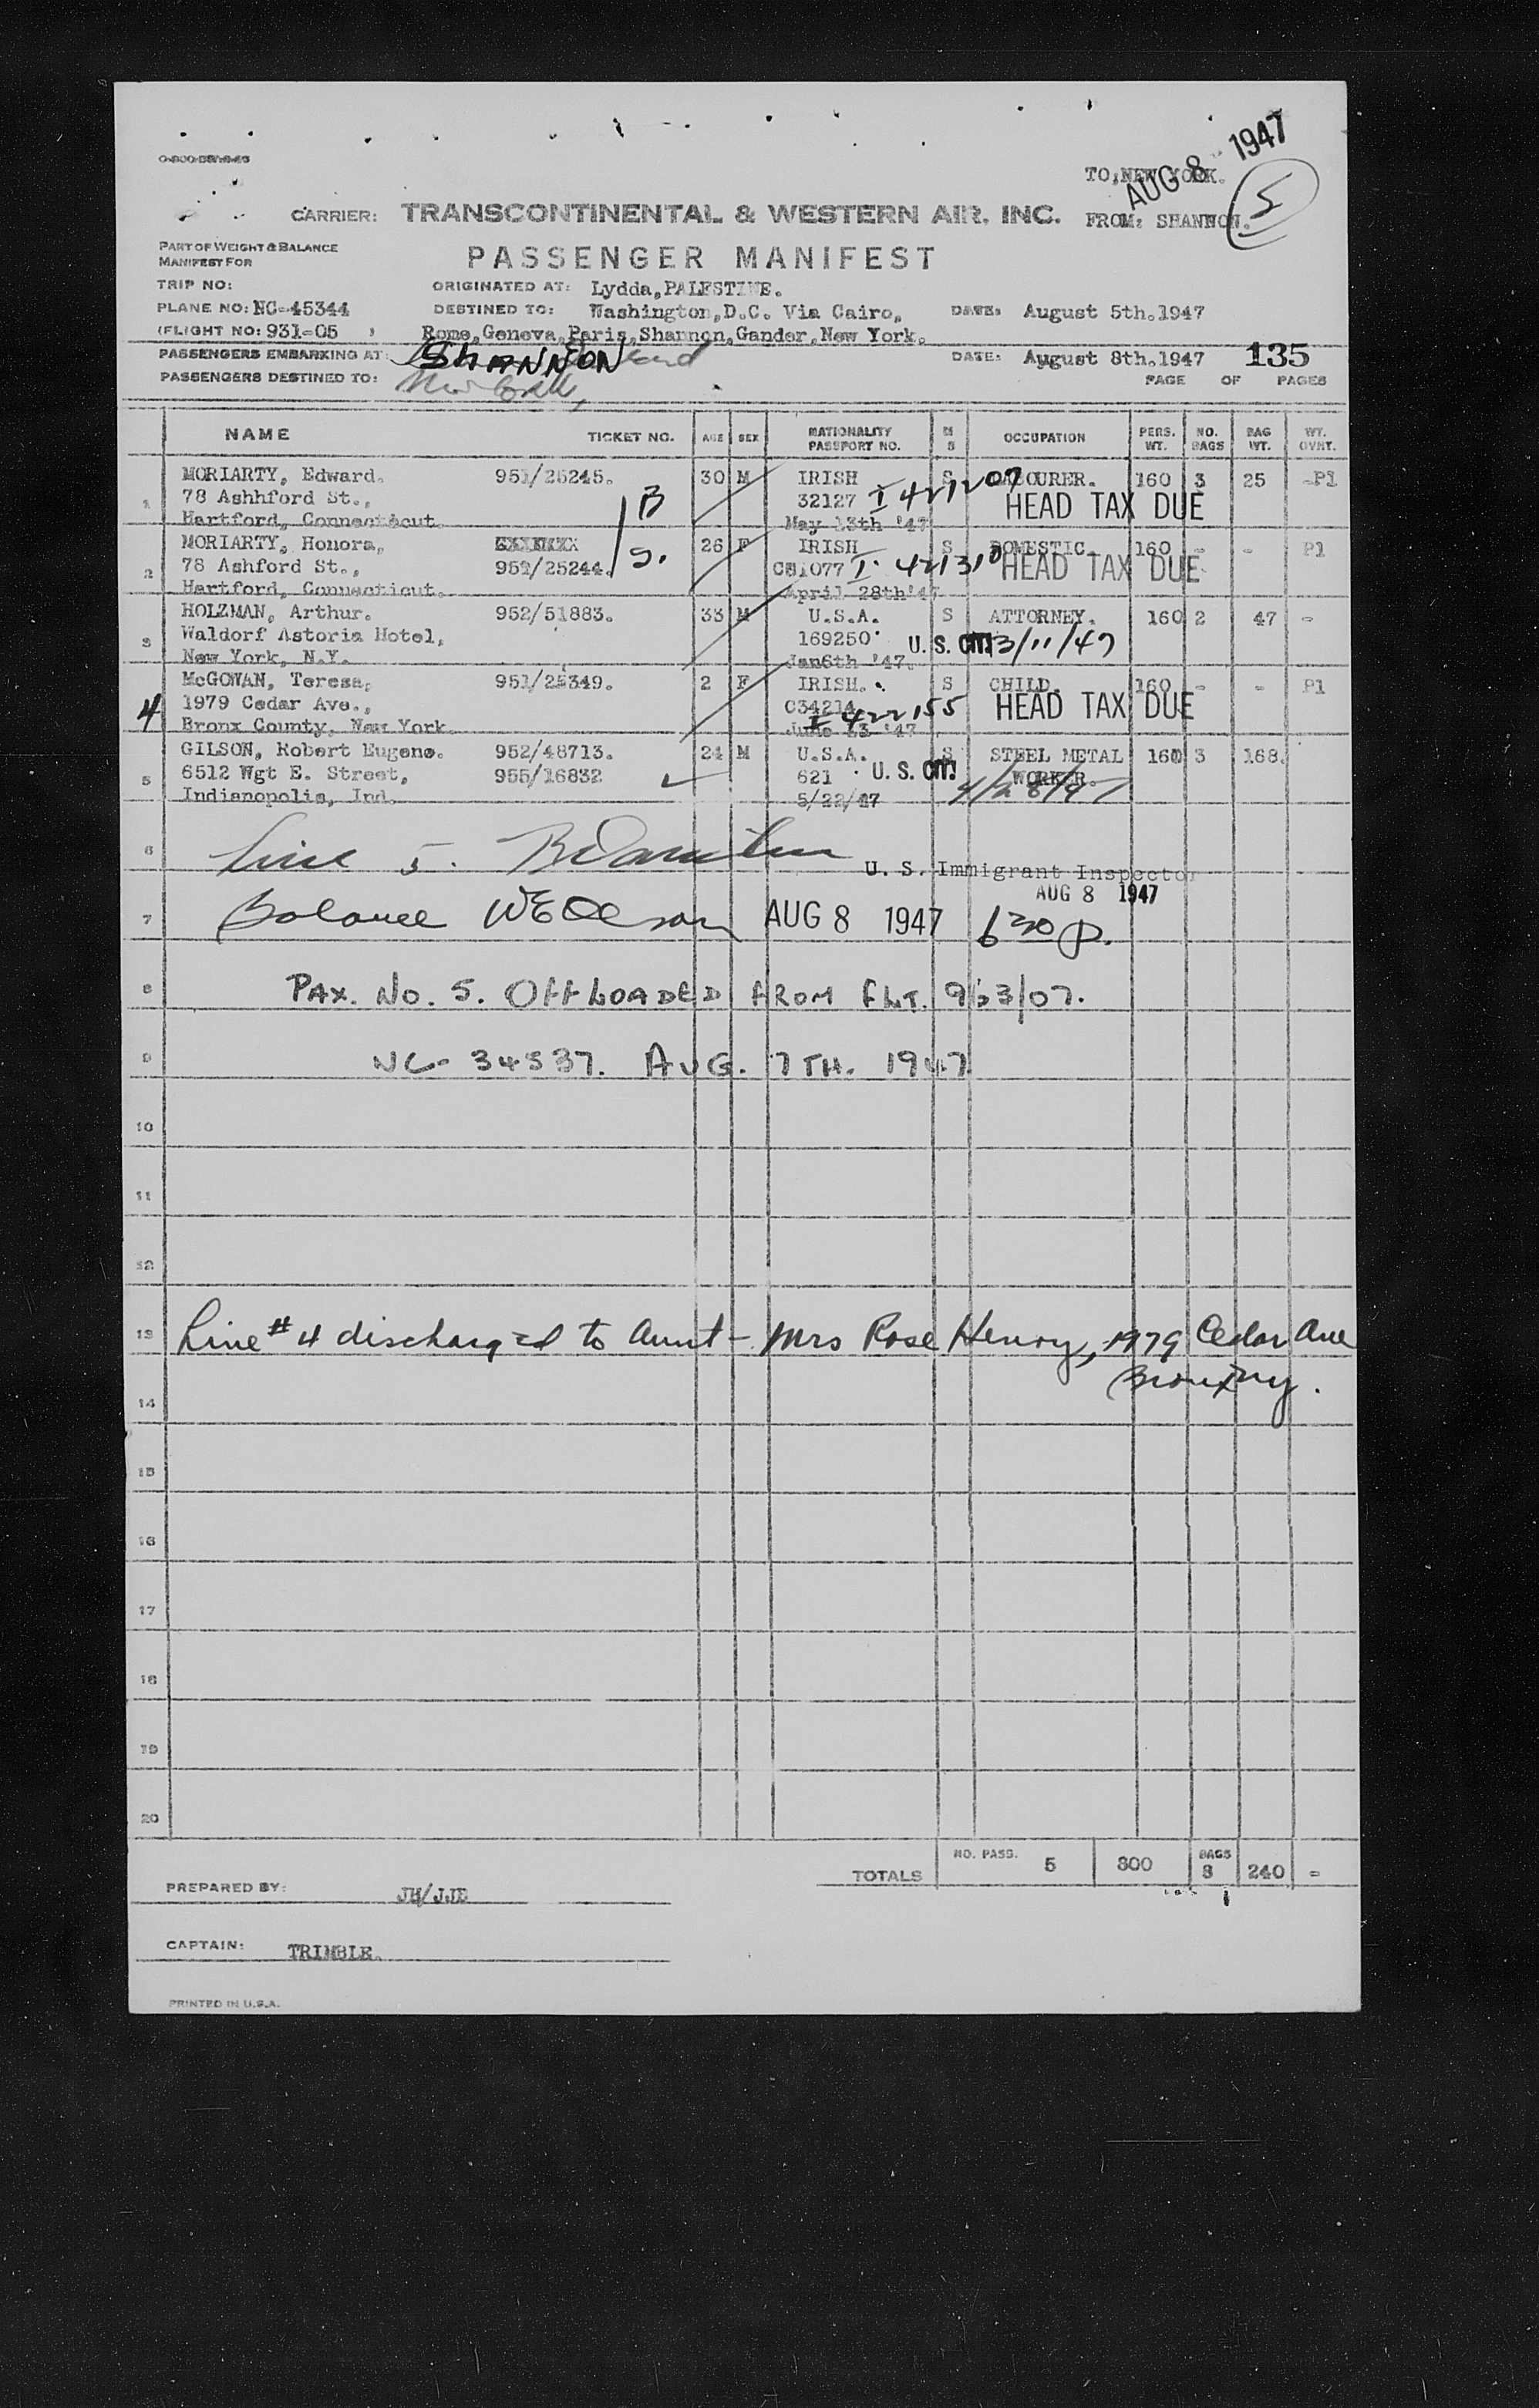 AUG 8 1947
TO, NEW YORK.
5
CARRIER: TRANSCONTINENTAL & WESTERN AIR, INC. FROM: SHANNON.
PART OF WEIGHT & BALANCE
MANIFEST FOR
PASSENGER MANIFEST
TRIP NO: ORIGINATED AT: Lydda,PALESTINE.
PLANE NO: NC-45344 DESTINED TO: Washington,D.C. Via Cairo, DATE: August 5th.1947
(FLIGHT NO: 931-05 ) Rome,Geneva,Paris,Shannon,Gander,New York.
PASSENGERS EMBARKING AT: SHANNON DATE: August 8th.1947 135
PASSENGERS DESTINED TO: New York, PAGE OF PAGES
NAME TICKET NO. AGE SEX NATIONALITY PASSPORT NO. M S OCCUPATION PERS. WT. NO. BAGS BAG WT. WT. OVHT.
MORIARTY, Edward. 951/25245. 30 M IRISH S LABOURER. 160 3 25 -P1
1 78 Ashhford St., B 32127 I 421207 HEAD TAX DUE
Hartford, Connecticut. May 13th '47
MORIARTY, Honora, 26 F IRISH S DOMESTIC. 160 - - P1
2 78 Ashford St., 951/25244. S. C81077 I. 421310 HEAD TAX DUE
Hartford, Connecticut. April 28th'47
HOLZMAN, Arthur. 952/51883. 33 M U.S.A. S ATTORNEY. 160 2 47 -
3 Waldorf Astoria Hotel, 169250 U. S. CIT. 3/11/47
New York, N.Y. Jan6th '47.
McGOWAN, Teresa, 951/25349. 2 F IRISH. S CHILD. 160 - - P1
4 1979 Cedar Ave., C34214 I 422155 HEAD TAX DUE
Bronx County, New York. June 13 '47
GILSON, Robert Eugene. 952/48713. 24 M U.S.A. S STEEL METAL 160 3 168.
5 6512 Wgt E. Street, 955/16832 621 U. S. CIT. WORKER.
Indianopolis, Ind. 5/22/47
6 Line 5.
U. S. Immigrant Inspector
AUG 8 1947
7 Balance AUG 8 1947 6 30 p.
8 PAX. NO. 5. OFFLOADED FROM FLT. 963/07.
9 NC- 34537. AUG. 7TH. 1947
10
11
12
13 Line # 4 discharged to Aunt - Mrs Rose Henry, 1979 Cedar Ave
Bronx NY.
14
15
16
17
18
19
20
TOTALS NO. PASS. 5 800 BAGS 8 240 -
PREPARED BY: JH/JJE
CAPTAIN: TRIMBLE.
PRINTED IN U.S.A.